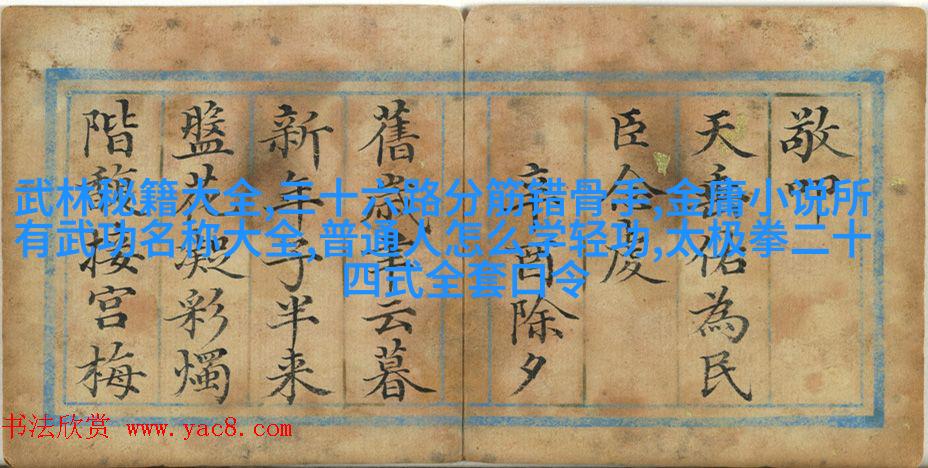 敬叩
天佑為民
臣
辛酉除夕
舊歲聿云暮
新年子半来
盤花凝彩燭
階馥接宮梅
武林秘籍大全,三十六路分筋错骨手,金庸小说所
有武功名称大全,普通人怎么学轻功,太极拳二十
四式全套口令
书法欣赏 www.yac8.com